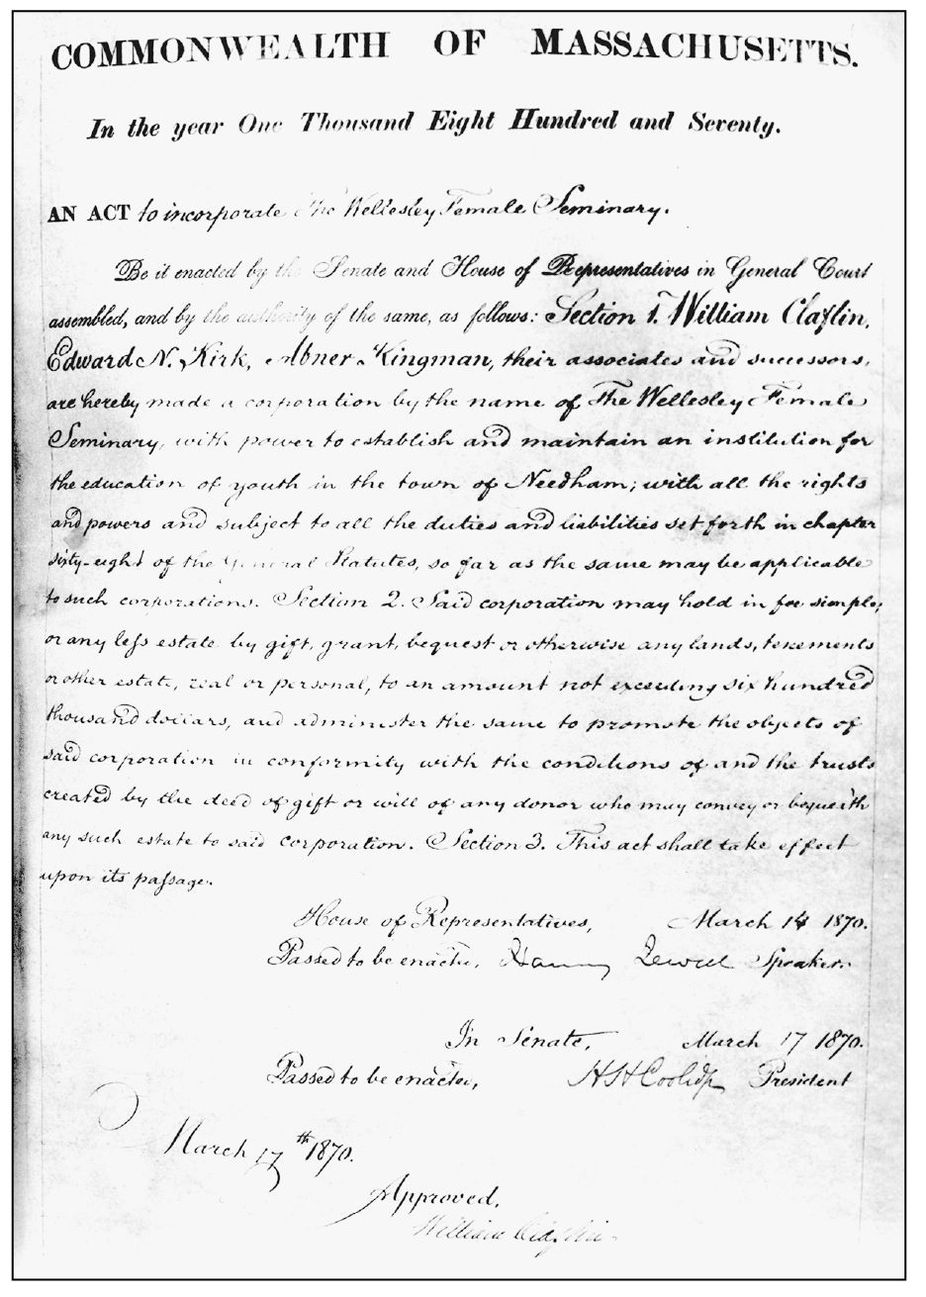 COMMONWEALTH OF MASSACHUSETTS.
In the year One Thousand Eight Hundred and Seventy.
AN ACT to incorporate The Wellesley Female Seminary.
Be it enacted by the Senate and House of Representatives in General Court
assembled, and by the authority of the same, as follows: Section 1. William Claflin,
Edward N. Kirk, Abner Kingman, their associates and successors,
are hereby made a corporation by the name of The Wellesley Female
Seminary, with power to establish and maintain an institution for
the education of youth in the town of Needham; with all the rights
and powers and subject to all the duties and liabilities set forth in chapter
sixty-eight of the General Statutes, so far as the same may be applicable
to such corporations. Section 2. Said corporation may hold in fee simple,
or any less estate by gift, grant, bequest or otherwise any lands, tenements
or other estate, real or personal, to an amount not exceeding six hundred
thousand dollars, and administer the same to promote the objects of
said corporation in conformity with the conditions of and the trusts
created by the deed of gift or will of any donor who may convey or bequeath
any such estate to said corporation. Section 3. This act shall take effect
upon its passage.
House of Representatives, March 14 1870.
Passed to be enacted, Harvey Jewell Speaker.
In Senate, March 17 1870.
Passed to be enacted, H H Coolidge President
March 17th 1870.
Approved,
William Claflin